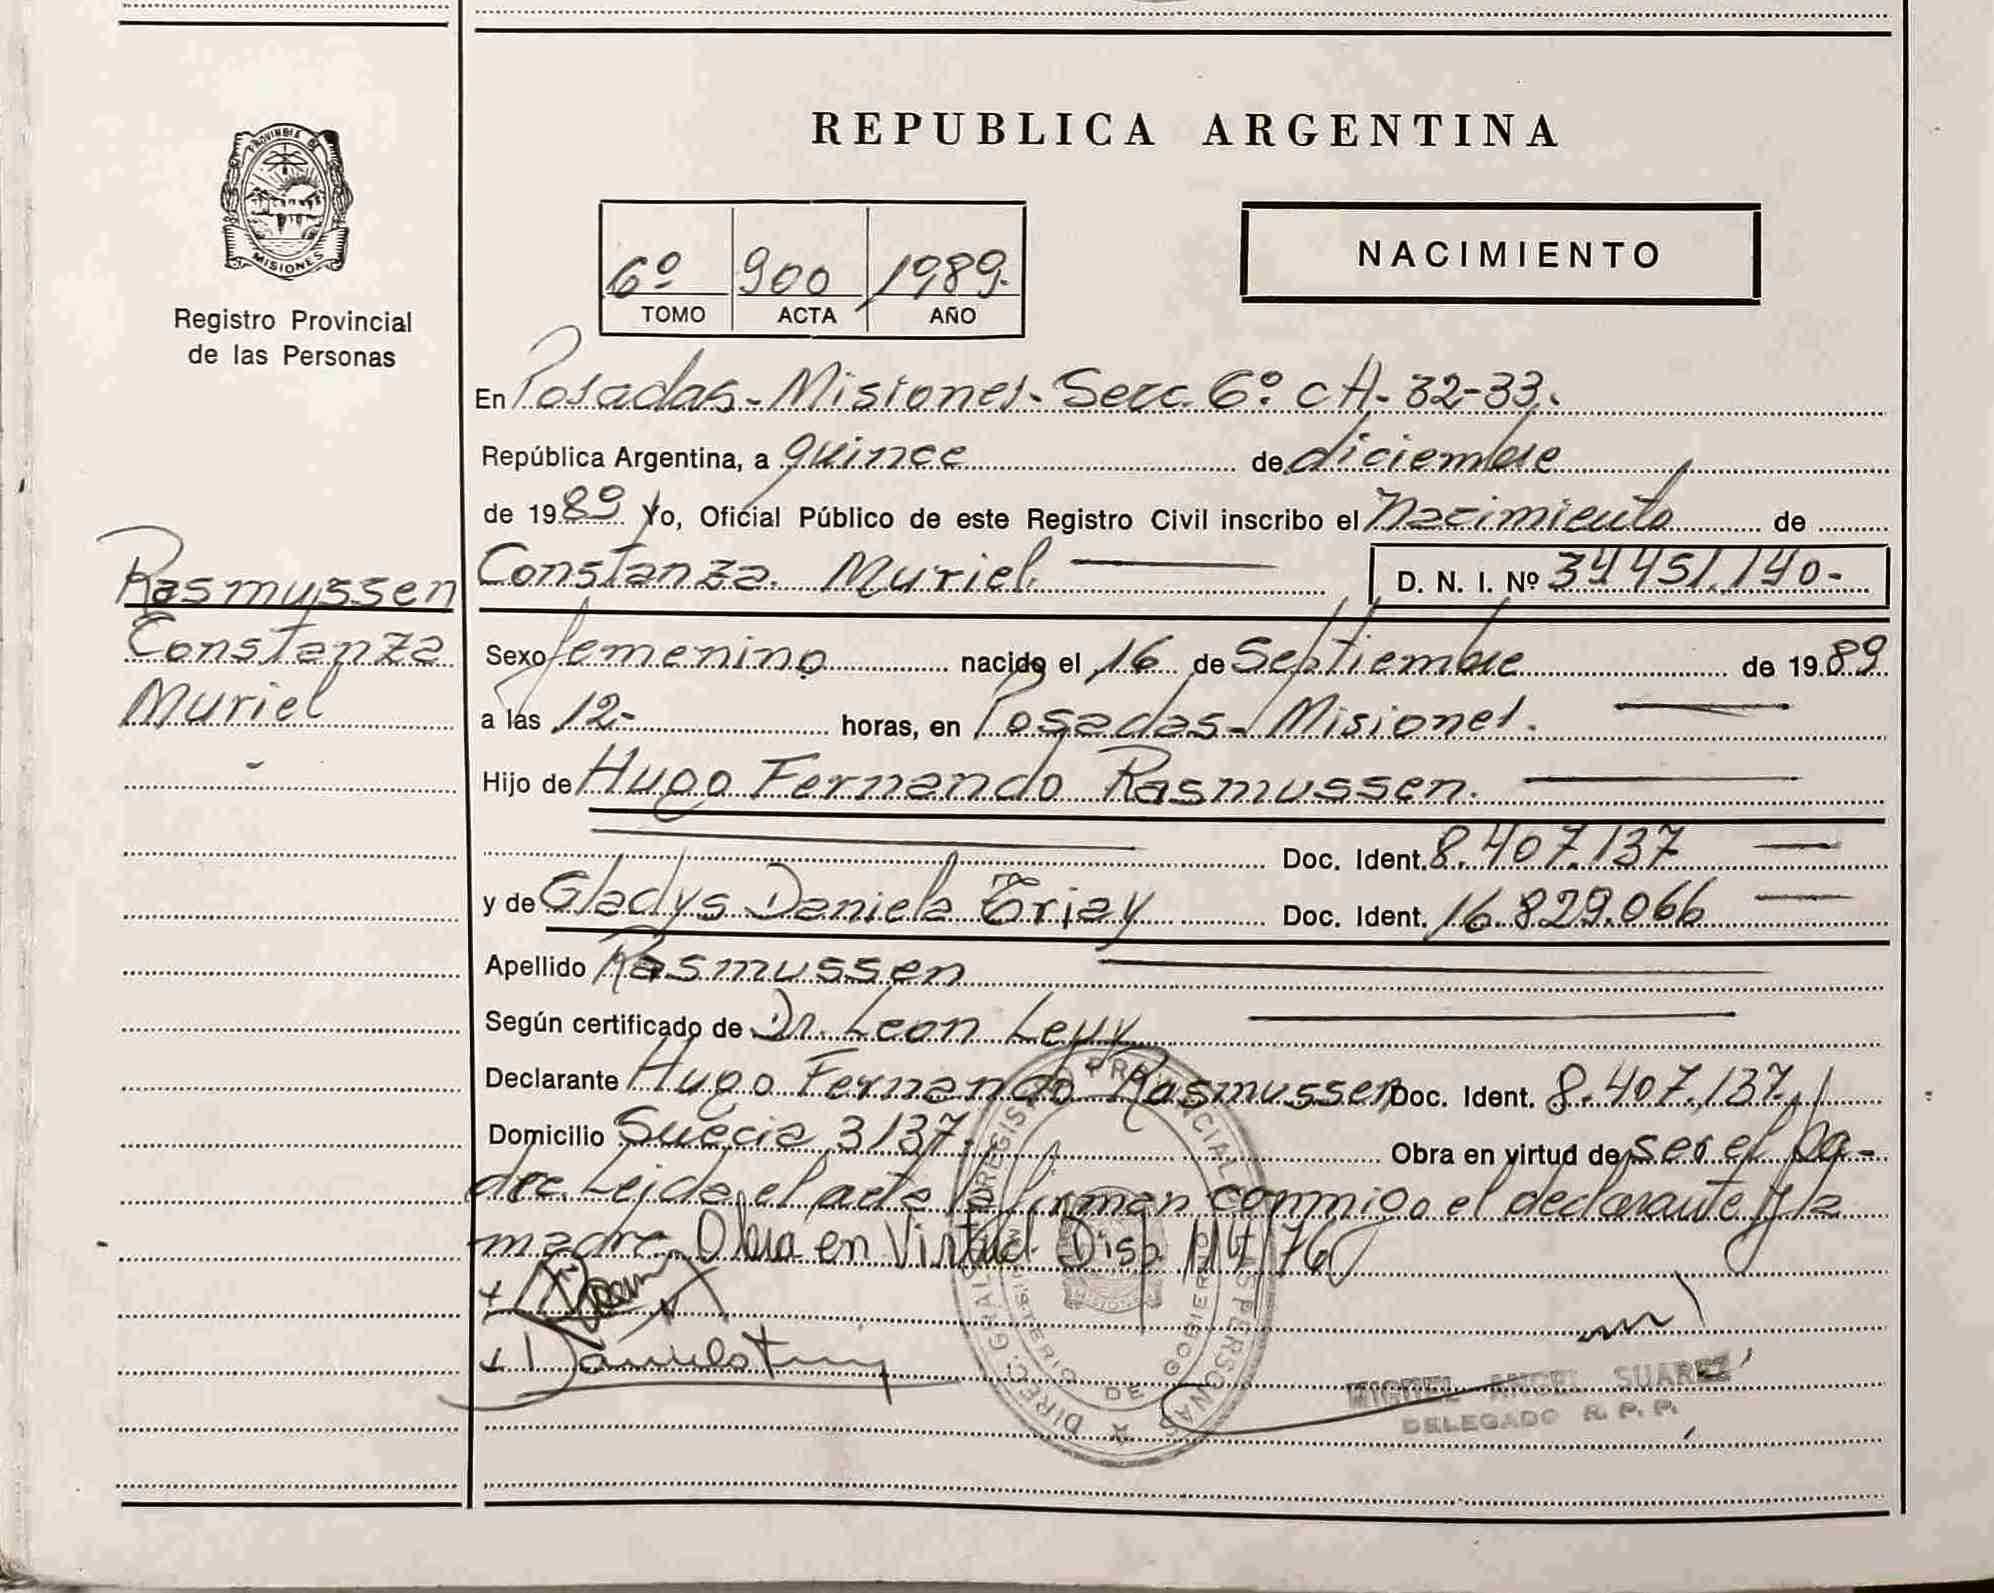 PROVINCIA DE
MISIONES
Registro Provincial
de las Personas
REPUBLICA ARGENTINA
6º 900 1989.
TOMO ACTA AÑO
NACIMIENTO
En Posadas - Misiones - Secc. 6º cH. 32-33.
República Argentina, a quince de diciembre
de 1989 Yo, Oficial Público de este Registro Civil inscribo el Nacimiento de
Constanza Muriel D. N. I. Nº 34451.140-
Rasmussen
Constanza
Muriel
Sexo femenino nacido el 16 de Septiembre de 1989
a las 12- horas, en Posadas - Misiones.
Hijo de Hugo Fernando Rasmussen.
Doc. Ident. 8.407.137
y de Gladys Daniela Doc. Ident. 16.829.066
Apellido Rasmussen
Según certificado de Dr. Leon Levy
Declarante Hugo Fernando Rasmussen Doc. Ident. 8.407.137.
Domicilio Suecia 3137. Obra en virtud de ser el pa-
dre. Leida el acta la firman conmigo el declarante y la
madre. Obra en Virtud Disp. 114/76
DIREC. GRAL. REGISTRO PROVINCIAL DE LAS PERSONAS
MINISTERIO DE GOBIERNO
MISIONES
MIGUEL ANGEL SUAREZ
DELEGADO R. P. P.